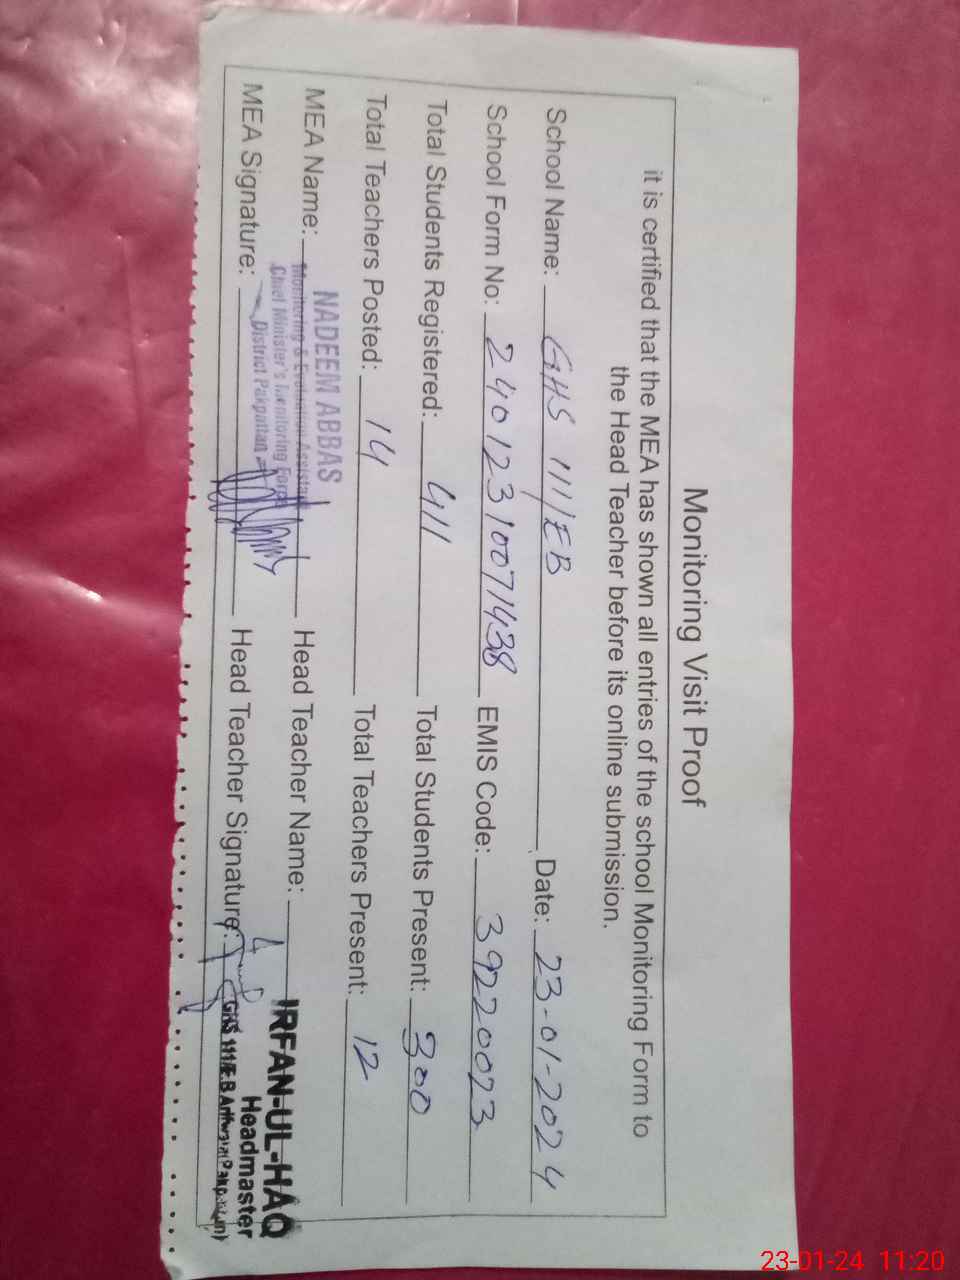 Monitoring Visit Proof
it is certified that the MEA has shown all entries of the school Monitoring Form to
the Head Teacher before its online submission.
School Name: GHS 111/EB Date: 23-01-2024
School Form No: 24012310071438 EMIS Code: 39220023
Total Students Registered: 411 Total Students Present: 300
Total Teachers Posted: 14 Total Teachers Present: 12
MEA Name: NADEEM ABBAS Head Teacher Name: IRFAN-UL-HAQ
Monitoring & Evaluation Assistant Headmaster
Chief Minister's Monitoring Force
MEA Signature: District Pakpattan Head Teacher Signature: GHS 111/E.B
23-01-24 11:20